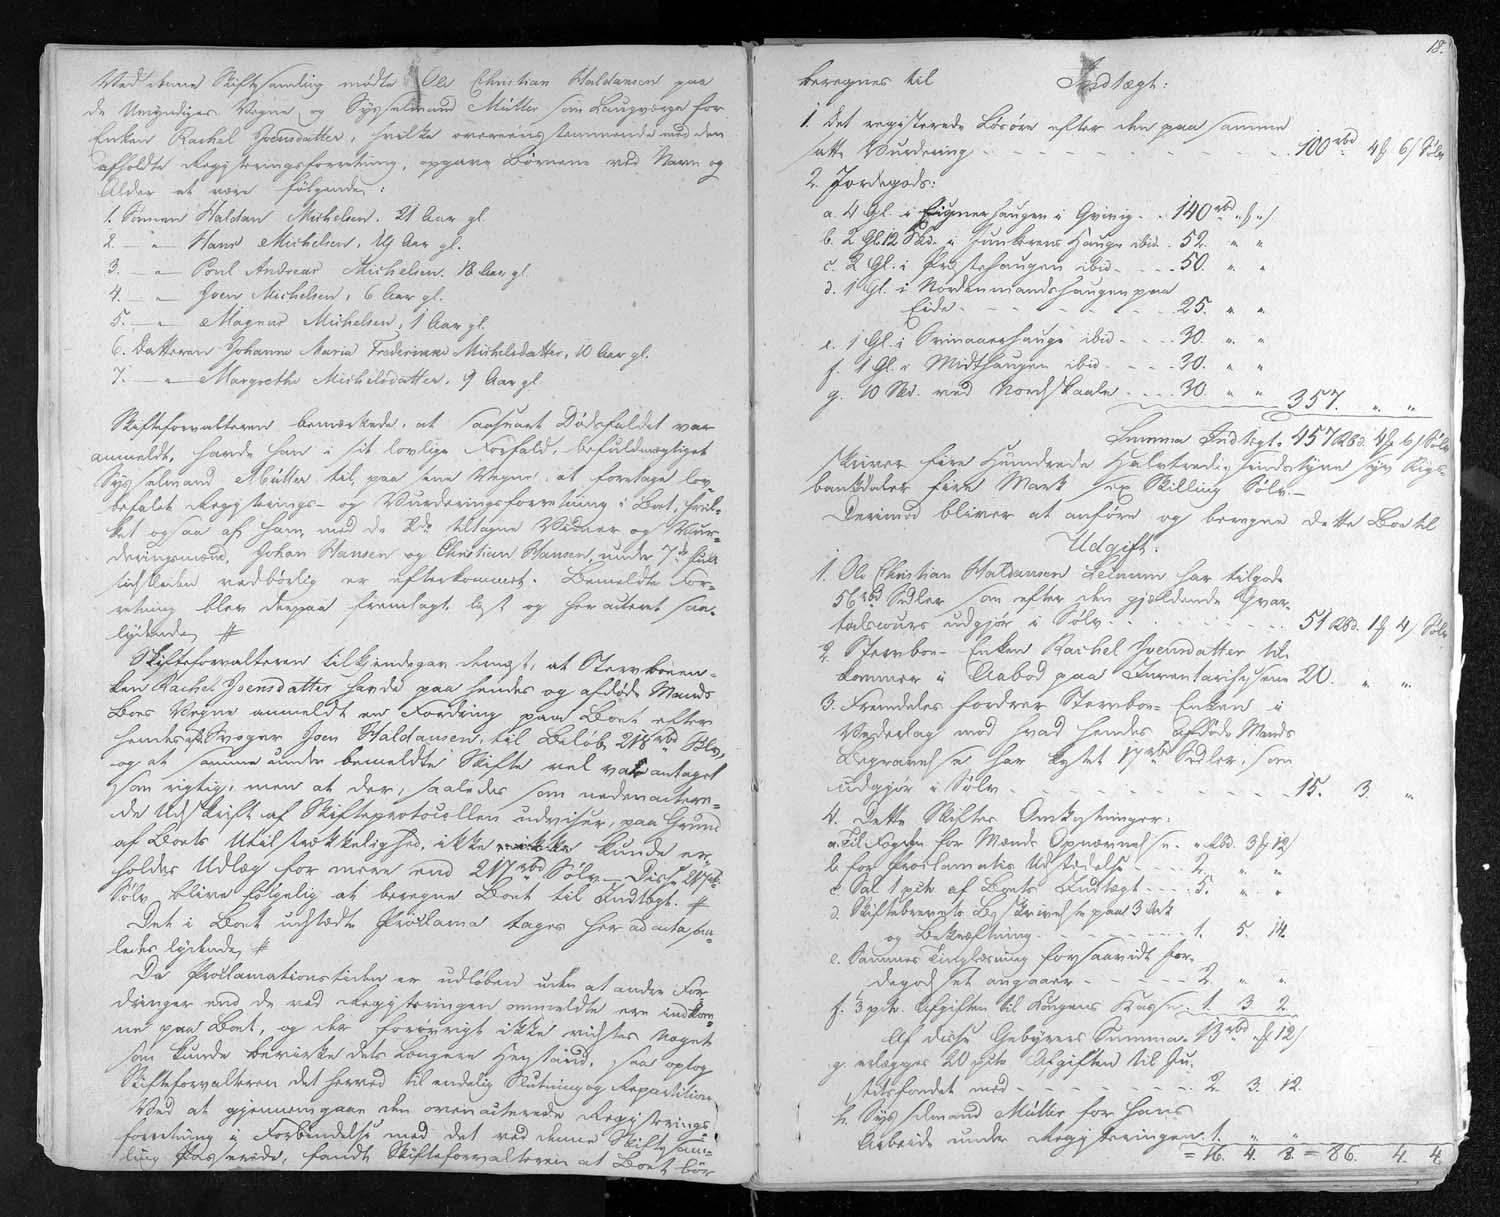 Ved denne Skiftesamling mødte Ole Christian Haldansen paa
de Umyndiges Vegne og Sysselmand Müller som Laugværge for
Enken Rachel Joensdatter, hvilke overeensstemmende med den
afholdte Registeringsforretning, opgave Børnene ved Navn og
Alder at være følgende:
1. Sønnen Haldan Michelsen. 21 Aar gl.
2. — " — Hans Michelsen, 19 Aar gl.
3. — " — Poul Andreas Michelsen. 18 Aar gl.
4. — " — Joen Michelsen, 6 Aar gl.
5. — " — Magnus Michelsen, 1 Aar gl.
6. Datteren Johanne Maria Fredericke Michelsdatter, 10 Aar gl.
7. — " — Margrethe Michelsdatter, 9 Aar gl.
Skifteforvalteren bemærkede, at saasnart Dødsfaldet var
anmeldt, havde han i sit lovlige Forfald, befuldmægtiget
Sysselmand Müller til, paa sine Vegne, at foretage lov-
befalet Registerings- og Vurderingsforretning i Boet, hvil-
ket ogsaa af ham, med de tiltagne Vidner og Vur-
deringsmænd, Johan Hansen og Christian Hansen, under 7de Juli
sidstleden vedbørlig er efterkommet. Bemeldte For-
retning blev derpaa fremlagt, læst og her acteret saa-
lydende #
Skifteforvalteren tilkjendegav dernæst, at Stervboeen-
ken Rachel Joensdatter havde paa hendes og afdøde Mands
Boes Vegne anmeldt en Fordring paa Boet efter
hendes Svoger Joen Haldansen, til Beløb 218 rbd Sølv,
og at samme under bemeldte Skifte vel var antaget
som rigtig, men at der, saaledes som nedenactere-
de Udskrift af Skifteprotocollen udviser, paa Grund
af Boets Utilstrækkelighed, ikke kunde er-
holdes Udlæg for mere end 217 rbd Sølv — Disse 217 rbd
Sølv blive følgelig at beregne Boet til Indtægt. #
Det i Boet udstædte Proclama tages her ad acta saa-
ledes lydende #
Da Proclamationstiden er udløben uden at andre For-
dringer end de ved Registeringen anmeldte ere indkom-
ne paa Boet, og der forøvrigt ikke vidstes Noget
som kunde bevirke dets længere Henstand, saa optog
Skifteforvalteren det herved til endelig Slutning og Repartition
Ved at gjennemgaae den ovenacterede Registerings
forretning i Forbindelse med det ved denne Skiftesam-
ling Passerede, fandt Skifteforvalteren at Boet bør
18.
beregnes til Indtægt:
1. det registerede Løsøre efter den paa samme
satte Vurdering - - - 100 rbd 4 ₰ 6 s Sølv
2. Jordegods:
a. 4 Gl. i Eignerhaugen i Qvivig - - 140 rbd " ₰ " s.
b. 2 Gl. 12 Skd. i Junkerens Hauge ibid. - 52. " "
c. 2 Gl. i Præstehaugen ibid - - - 50. " "
d. 1 Gl. i Nordenmandshaugen paa
Eide - - - 25. " "
e. 1 Gl. i ibid - - - 30. " "
f. 1 Gl. i Midthaugen ibid. - - - 30. " "
g. 10 Skd. ved Nordskaale - - - 30. " " 357. " "
Summa Indtægt. 457 Rbd. 4 ₰ 6 s Sølv
skriver fire Hundrede Halvtredsindstyve syv Rigs-
bankdaler fire Mark sex Skilling Sølv. —
Derimod bliver at anføre og beregne dette Boe til
Udgift.
1. Ole Christian Haldansen Leinum har tilgode
56 rbd Sedler som efter den gjældende Qvar-
talscours udgjør i Sølv - - - 51 Rbd. 1 ₰ 4 s Sølv
2. Stervboe-Enken Rachel Joensdatter til-
kommer i Aabod paa Inventarihusene 20. " "
3. Fremdeles fordrer Stervboe-Enken i
Vederlag mod hvad hendes afdøde Mands
Begravelse har kostet 17 rbd Sedler, som
udgjør i Sølv - - - 15. 3. "
4. Dette Skiftes Omkostninger:
a. Til Fogden for Mænds Opnævnelse. " Rbd. 3 ₰ 12 s
b. for Proclamatis Udstædelse - - 2. " "
c. Sal 1 pCto af Boets Indtægt - - - 5. " "
d. Skiftebrevets Beskrivelse paa 3 Ark
og Bekræftning - - - 1. 5. 14.
e. Sammes Tinglæsning forsaavidt Jor-
degodset angaaer - - - 2. " "
f. ⅓ pCto Afgiften til Kongens Kasse 1. 3 2.
Af disse Gebyrers Summa. 13 rbd " ₰ 12 s
g. erlægges 20 pCto Afgiften til Ju-
stitsfondet med - - - 2. 3. 12.
h. Sysselmand Müller for hans
Arbeide under Registeringen. 1. " "
= 16. 4. 8. = 86. 4. 4